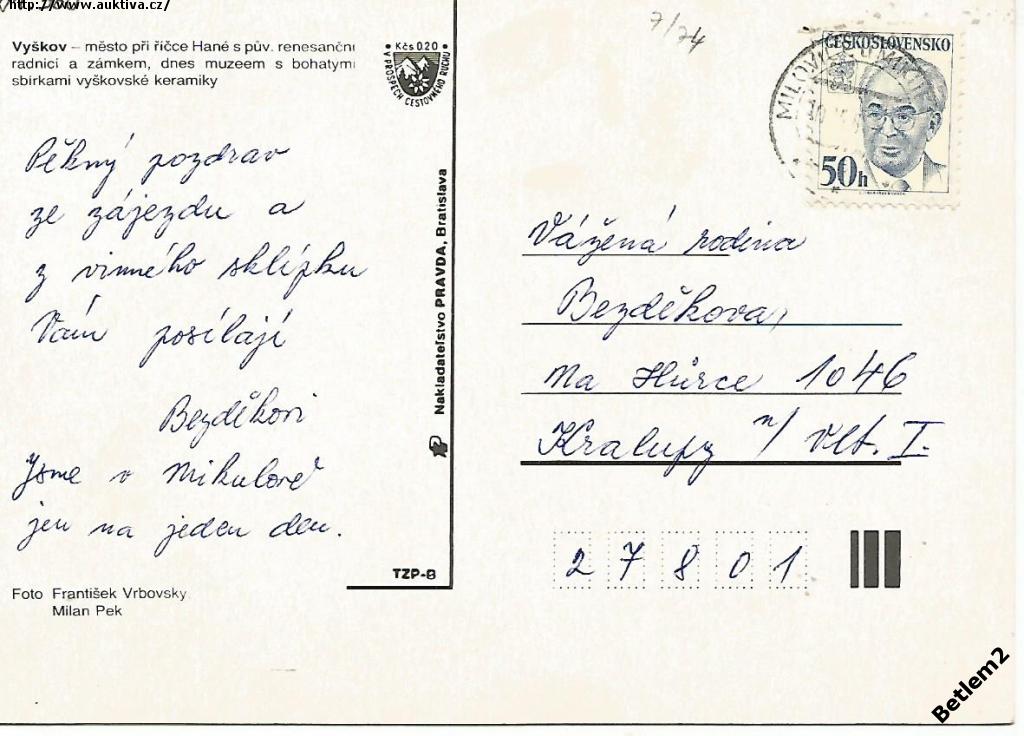 http://www.auktiva.cz/
7/74
Vyškov – město při říčce Hané s pův. renesanční
radnicí a zámkem, dnes muzeem s bohatými
sbírkami vyškovské keramiky
Kčs 0.20
V PROSPĚCH CESTOVNÉHO RUCHU
Pěkný pozdrav
ze zájezdu a
z vinného sklípku
Vám posílají
Bezděkovi
Jsme v Mikulově
jen na jeden den.
Foto František Vrbovsky
Milan Pek
Nakladateľstvo PRAVDA, Bratislava
TZP-8
ČESKOSLOVENSKO
50h
MILOVICE U MIK
Vážená rodina
Bezděkova,
Na Hůrce 1046
Kralupy n/ Vlt. I.
27801
Betlem2